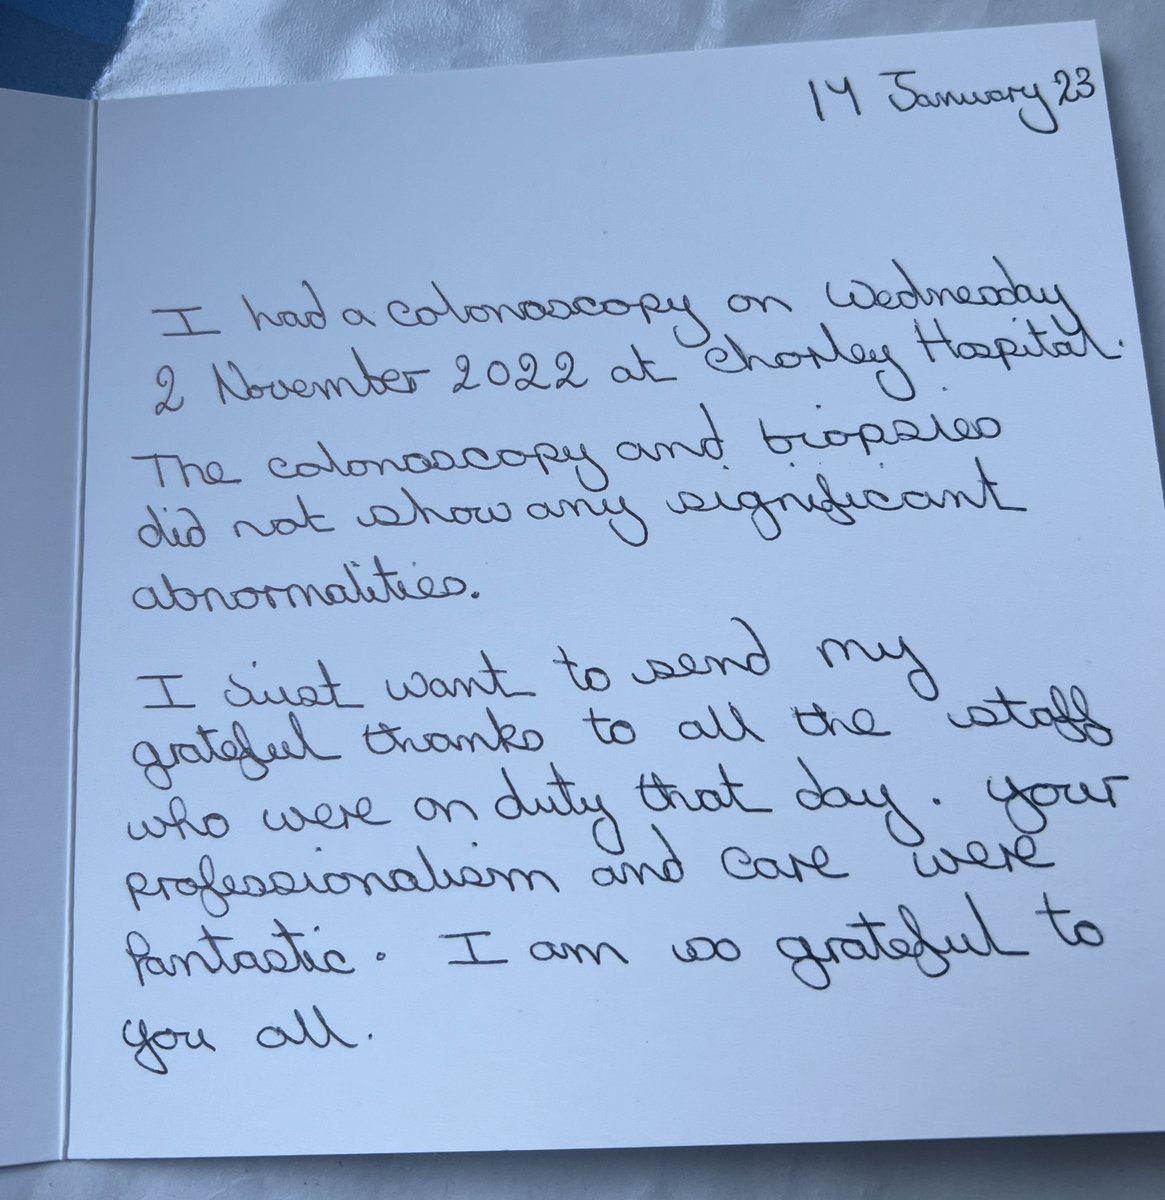 14 January 23
I had a colonoscopy on Wednesday
2 November 2022 at Chorley Hospital.
The colonoscopy and biopsies
did not show any significant
abnormalities.
I just want to send my
grateful thanks to all the staff
who were on duty that day. Your
professionalism and care were
fantastic. I am so grateful to
you all.